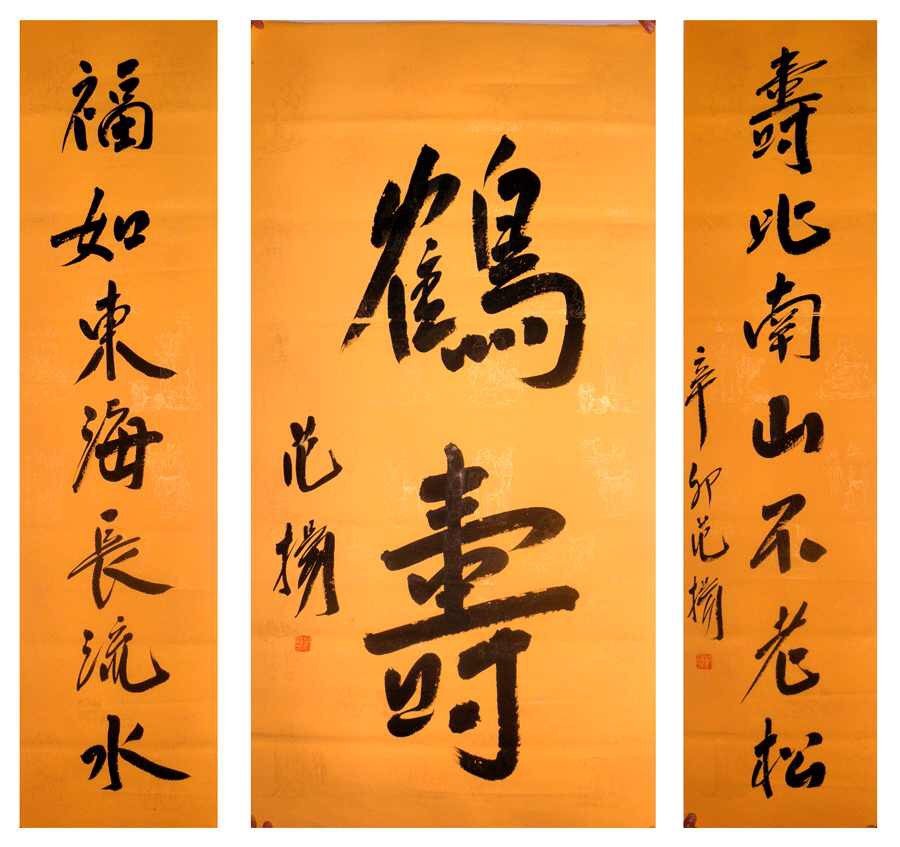 福如東海長流水
鶴壽
范揚
壽比南山不老松
辛卯范揚